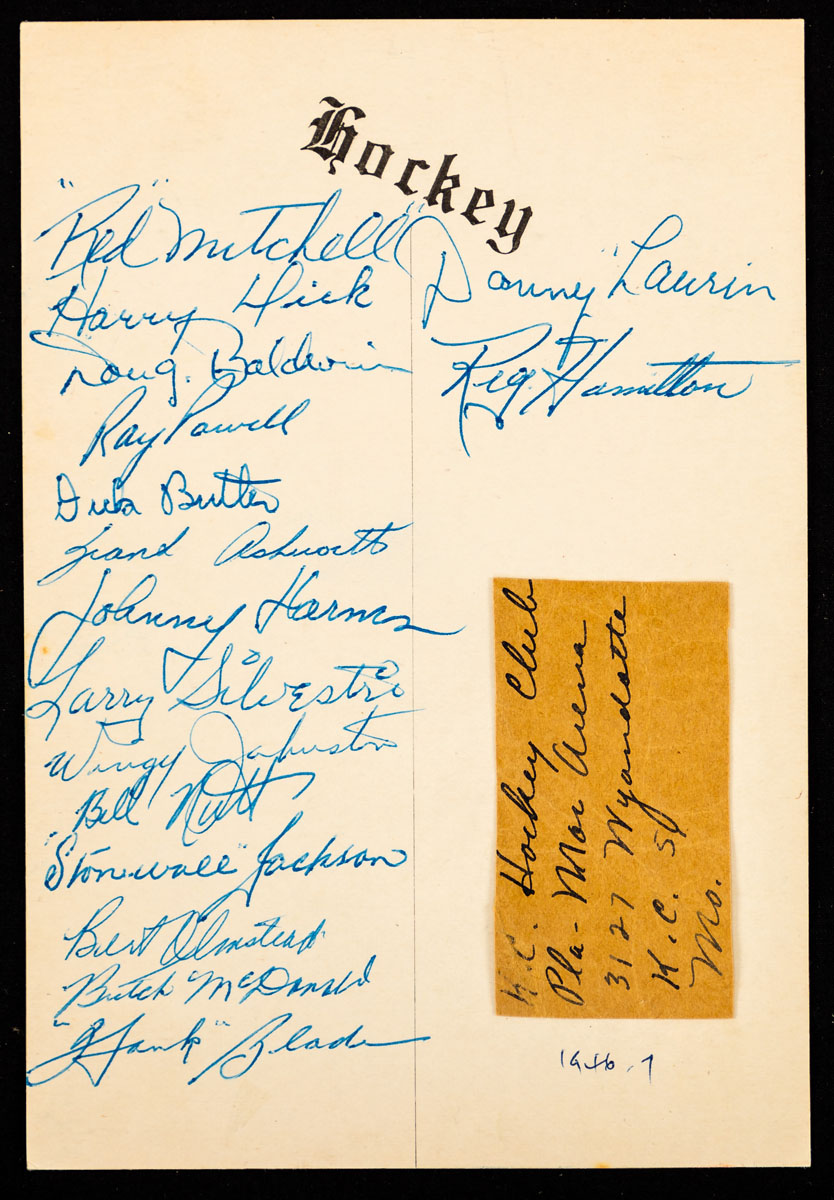 Hockey
"Red" Mitchell
Harry Dick
Doug. Baldwin
Ray Powell
Dick Butler
Ashworth
Johnny Harms
Larry Silvestri
Wingy Johnston
Bill Nutt
"Stonewall" Jackson
Bert Olmstead
Butch McDonald
"Hank" Blade
"Danny" Laurin
Reg. Hamilton
K.C. Hockey Club
Pla-Mor Arena
3127 Wyandotte
K.C.
Mo.
1946-7